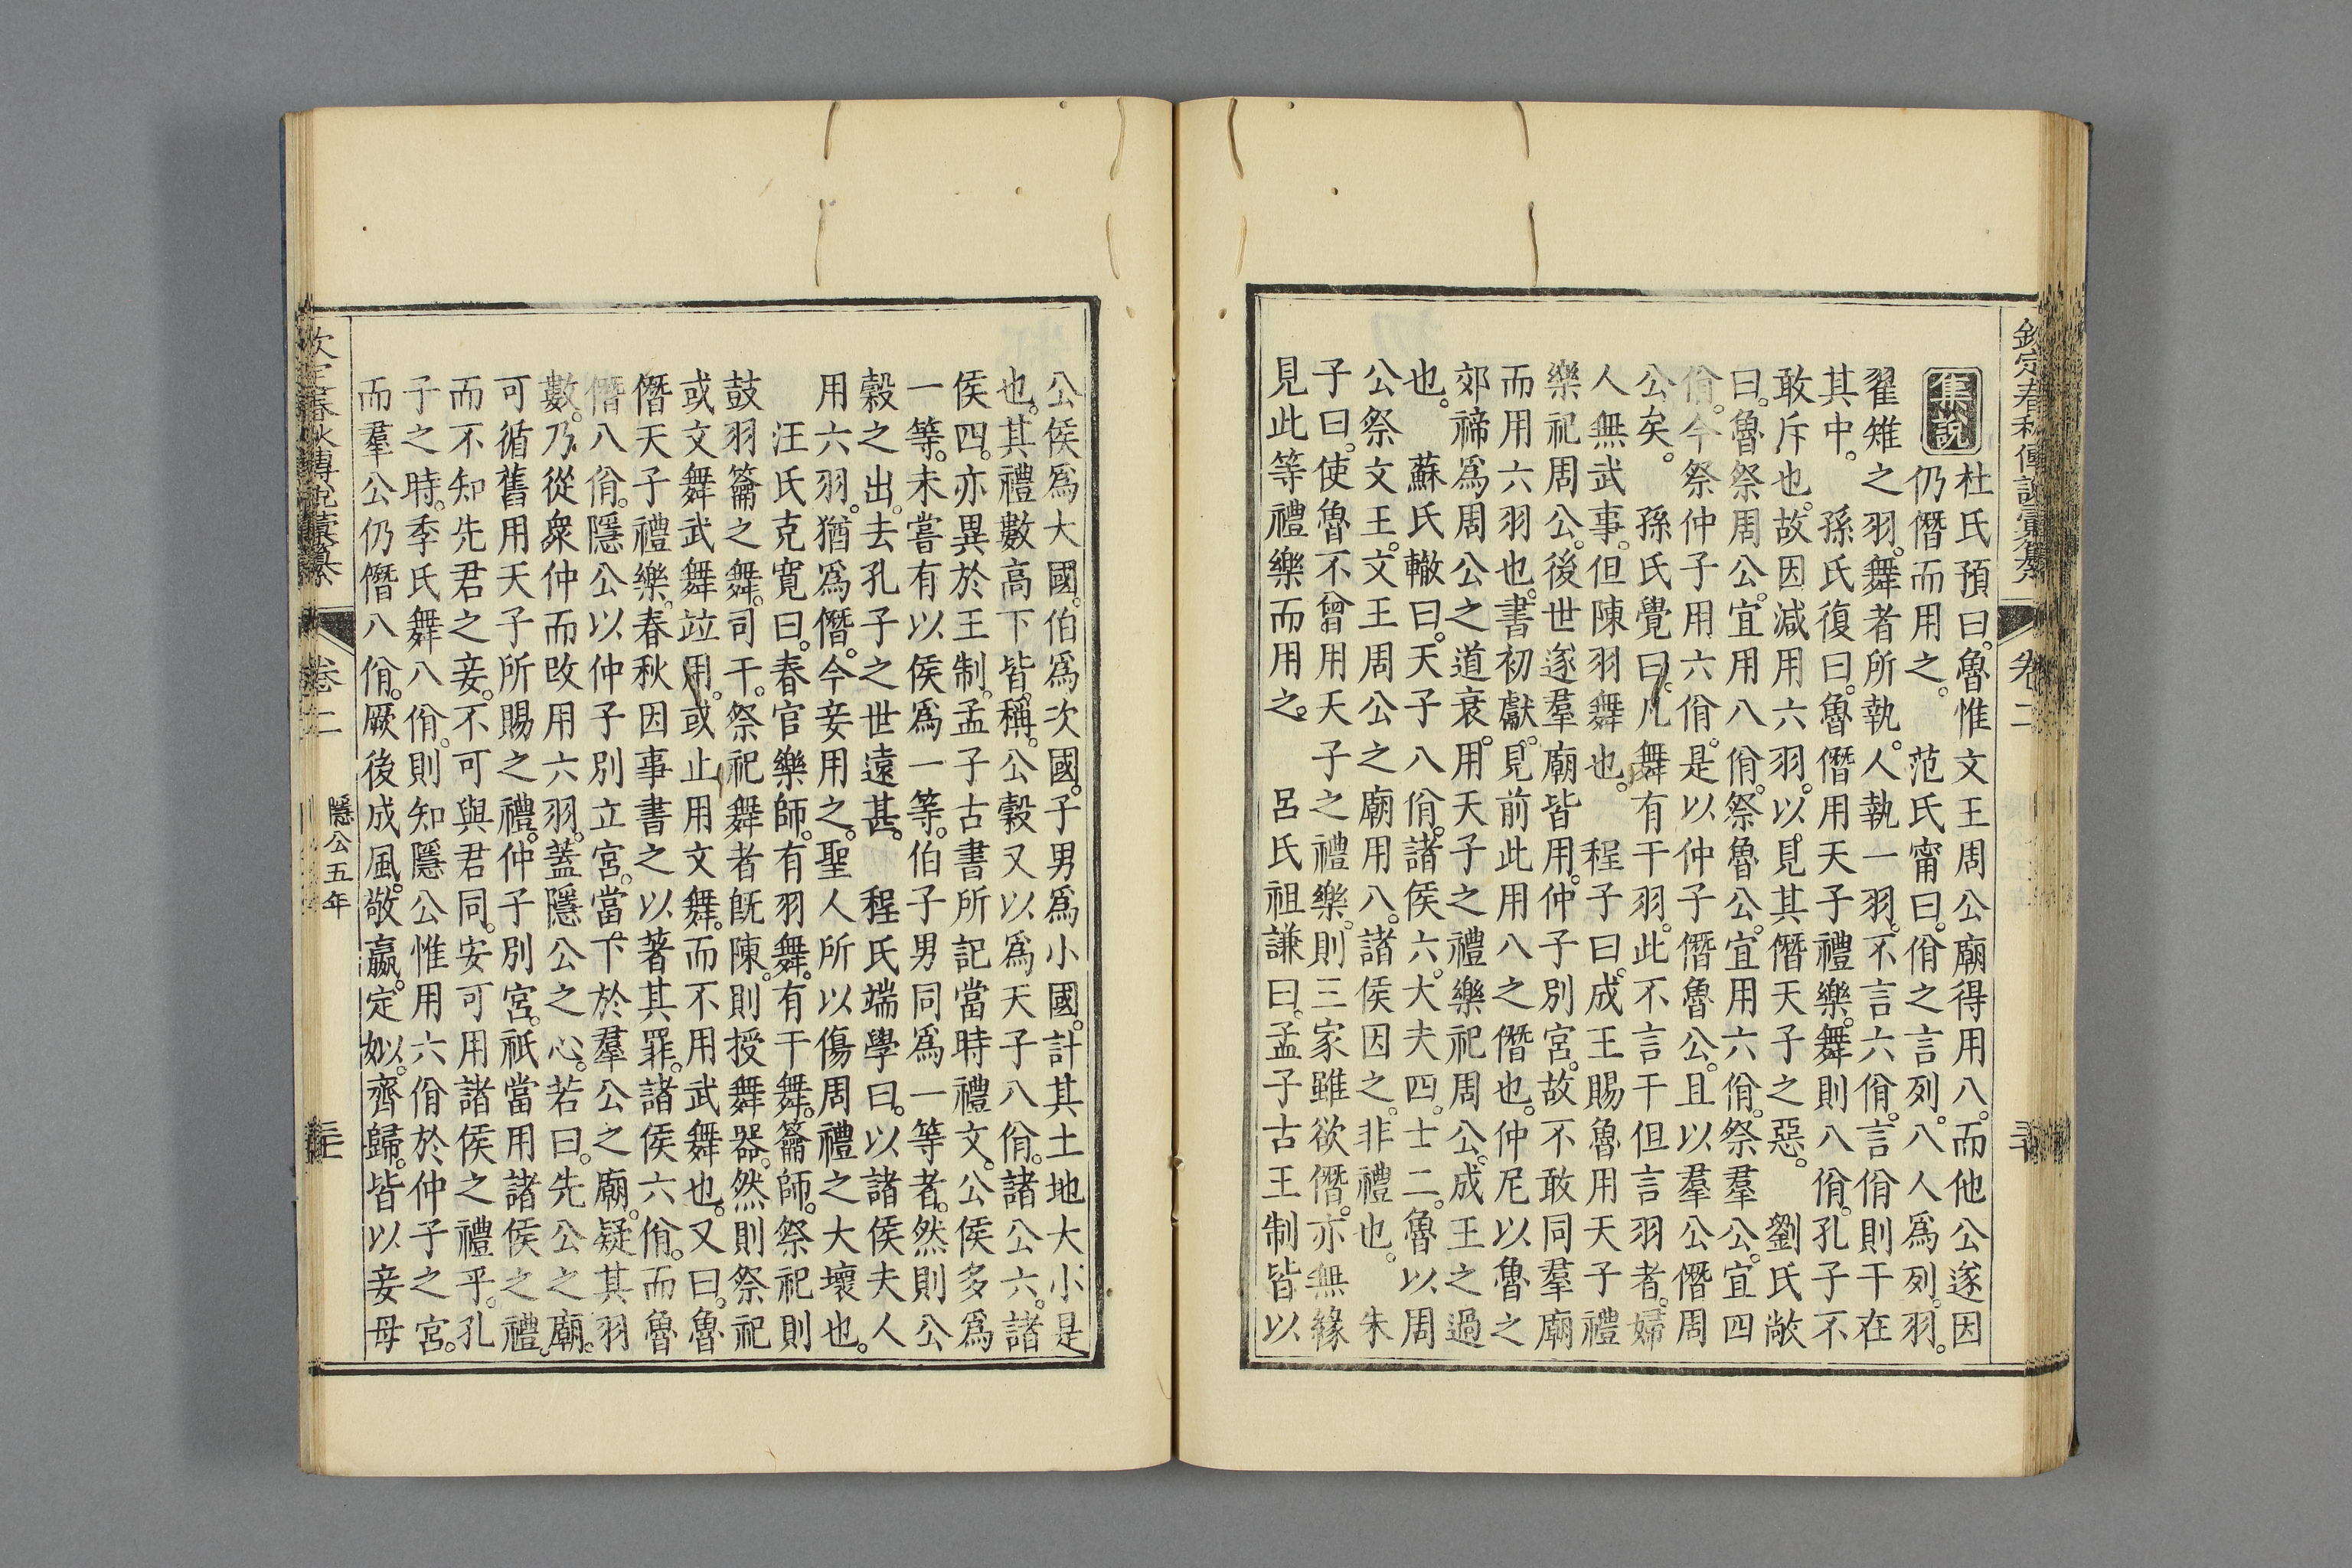 欽定春秋傳說彙纂 卷二
集說
杜氏預曰。魯惟文王周公廟得用八。而他公遂因
仍僭而用之。 范氏甯曰。佾之言列。八人爲列。羽。
翟雉之羽。舞者所執。人執一羽。不言六佾。言佾則干在
其中。 孫氏復曰。魯僭用天子禮樂。舞則八佾。孔子不
敢斥也。故因減用六羽。以見其僭天子之惡。 劉氏敞
曰。魯祭周公。宜用八佾。祭魯公。宜用六佾。祭羣公。宜四
佾。今祭仲子用六佾。是以仲子僭魯公。且以羣公僭周
公矣。 孫氏覺曰。凡舞有干羽。此不言干但言羽者。婦
人無武事。但陳羽舞也。 程子曰。成王賜魯用天子禮
樂祀周公。後世遂羣廟皆用。仲子別宮。故不敢同羣廟
而用六羽也。書初獻。見前此用八之僭也。仲尼以魯之
郊禘爲周公之道衰。用天子之禮樂祀周公。成王之過
也。 蘇氏轍曰。天子八佾。諸侯六。大夫四。士二。魯以周
公祭文王。文王周公之廟用八。諸侯因之。非禮也。 朱
子曰。使魯不曾用天子之禮樂。則三家雖欲僭。亦無緣
見此等禮樂而用之。 呂氏祖謙曰。孟子古王制皆以
公侯爲大國。伯爲次國。子男爲小國。計其土地大小是
也。其禮數高下皆稱。公穀又以爲天子八佾。諸公六。諸
侯四。亦異於王制。孟子古書所記當時禮文。公侯多爲
一等。未嘗有以侯爲一等。伯子男同爲一等者。然則公
穀之出。去孔子之世遠甚。 程氏端學曰。以諸侯夫人
用六羽。猶爲僭。今妾用之。聖人所以傷周禮之大壞也。
汪氏克寬曰。春官樂師。有羽舞。有干舞。籥師。祭祀則
鼓羽籥之舞。司干。祭祀舞者旣陳。則授舞器。然則祭祀
或文舞武舞竝用。或止用文舞。而不用武舞也。又曰。魯
僭天子禮樂。春秋因事書之以著其罪。諸侯六佾。而魯
僭八佾。隱公以仲子別立宮。當下於羣公之廟。疑其羽
數。乃從衆仲而改用六羽。蓋隱公之心。若曰。先公之廟。
可循舊用天子所賜之禮。仲子別宮。祇當用諸侯之禮。
而不知先君之妾。不可與君同。安可用諸侯之禮乎。孔
子之時。季氏舞八佾。則知隱公惟用六佾於仲子之宮。
而羣公仍僭八佾。厥後成風。敬嬴。定姒。齊歸。皆以妾母
欽定春秋傳說彙纂 卷二 隱公五年